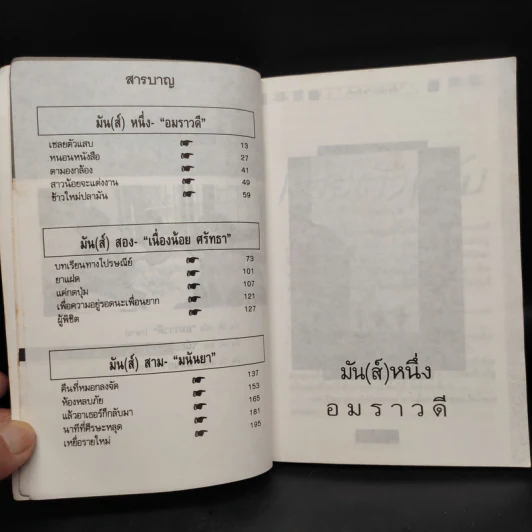 สารบาญ
มัน(ส์) หนึ่ง- "อมราวดี"
เชลยตัวแสบ 13
หนอนหนังสือ 27
ตามองกล้อง 41
สาวน้อยจะแต่งงาน 49
ข้าวใหม่ปลามัน 59
มัน(ส์) สอง- "เนื่องน้อย ศรัทธา"
บทเรียนทางไปรษณีย์ 73
ยาแฝด 101
แค่กดปุ่ม 107
เพื่อความอยู่รอดนะเพื่อนยาก 121
ผู้พิชิต 127
มัน(ส์) สาม- "มนันยา"
คืนที่หมอกลงจัด 137
ห้องหลบภัย 153
แล้วอาเธอร์ก็กลับมา 165
นาทีที่ศีรษะหลุด 181
เหยื่อรายใหม่ 195
มัน(ส์)หนึ่ง
อมราวดี